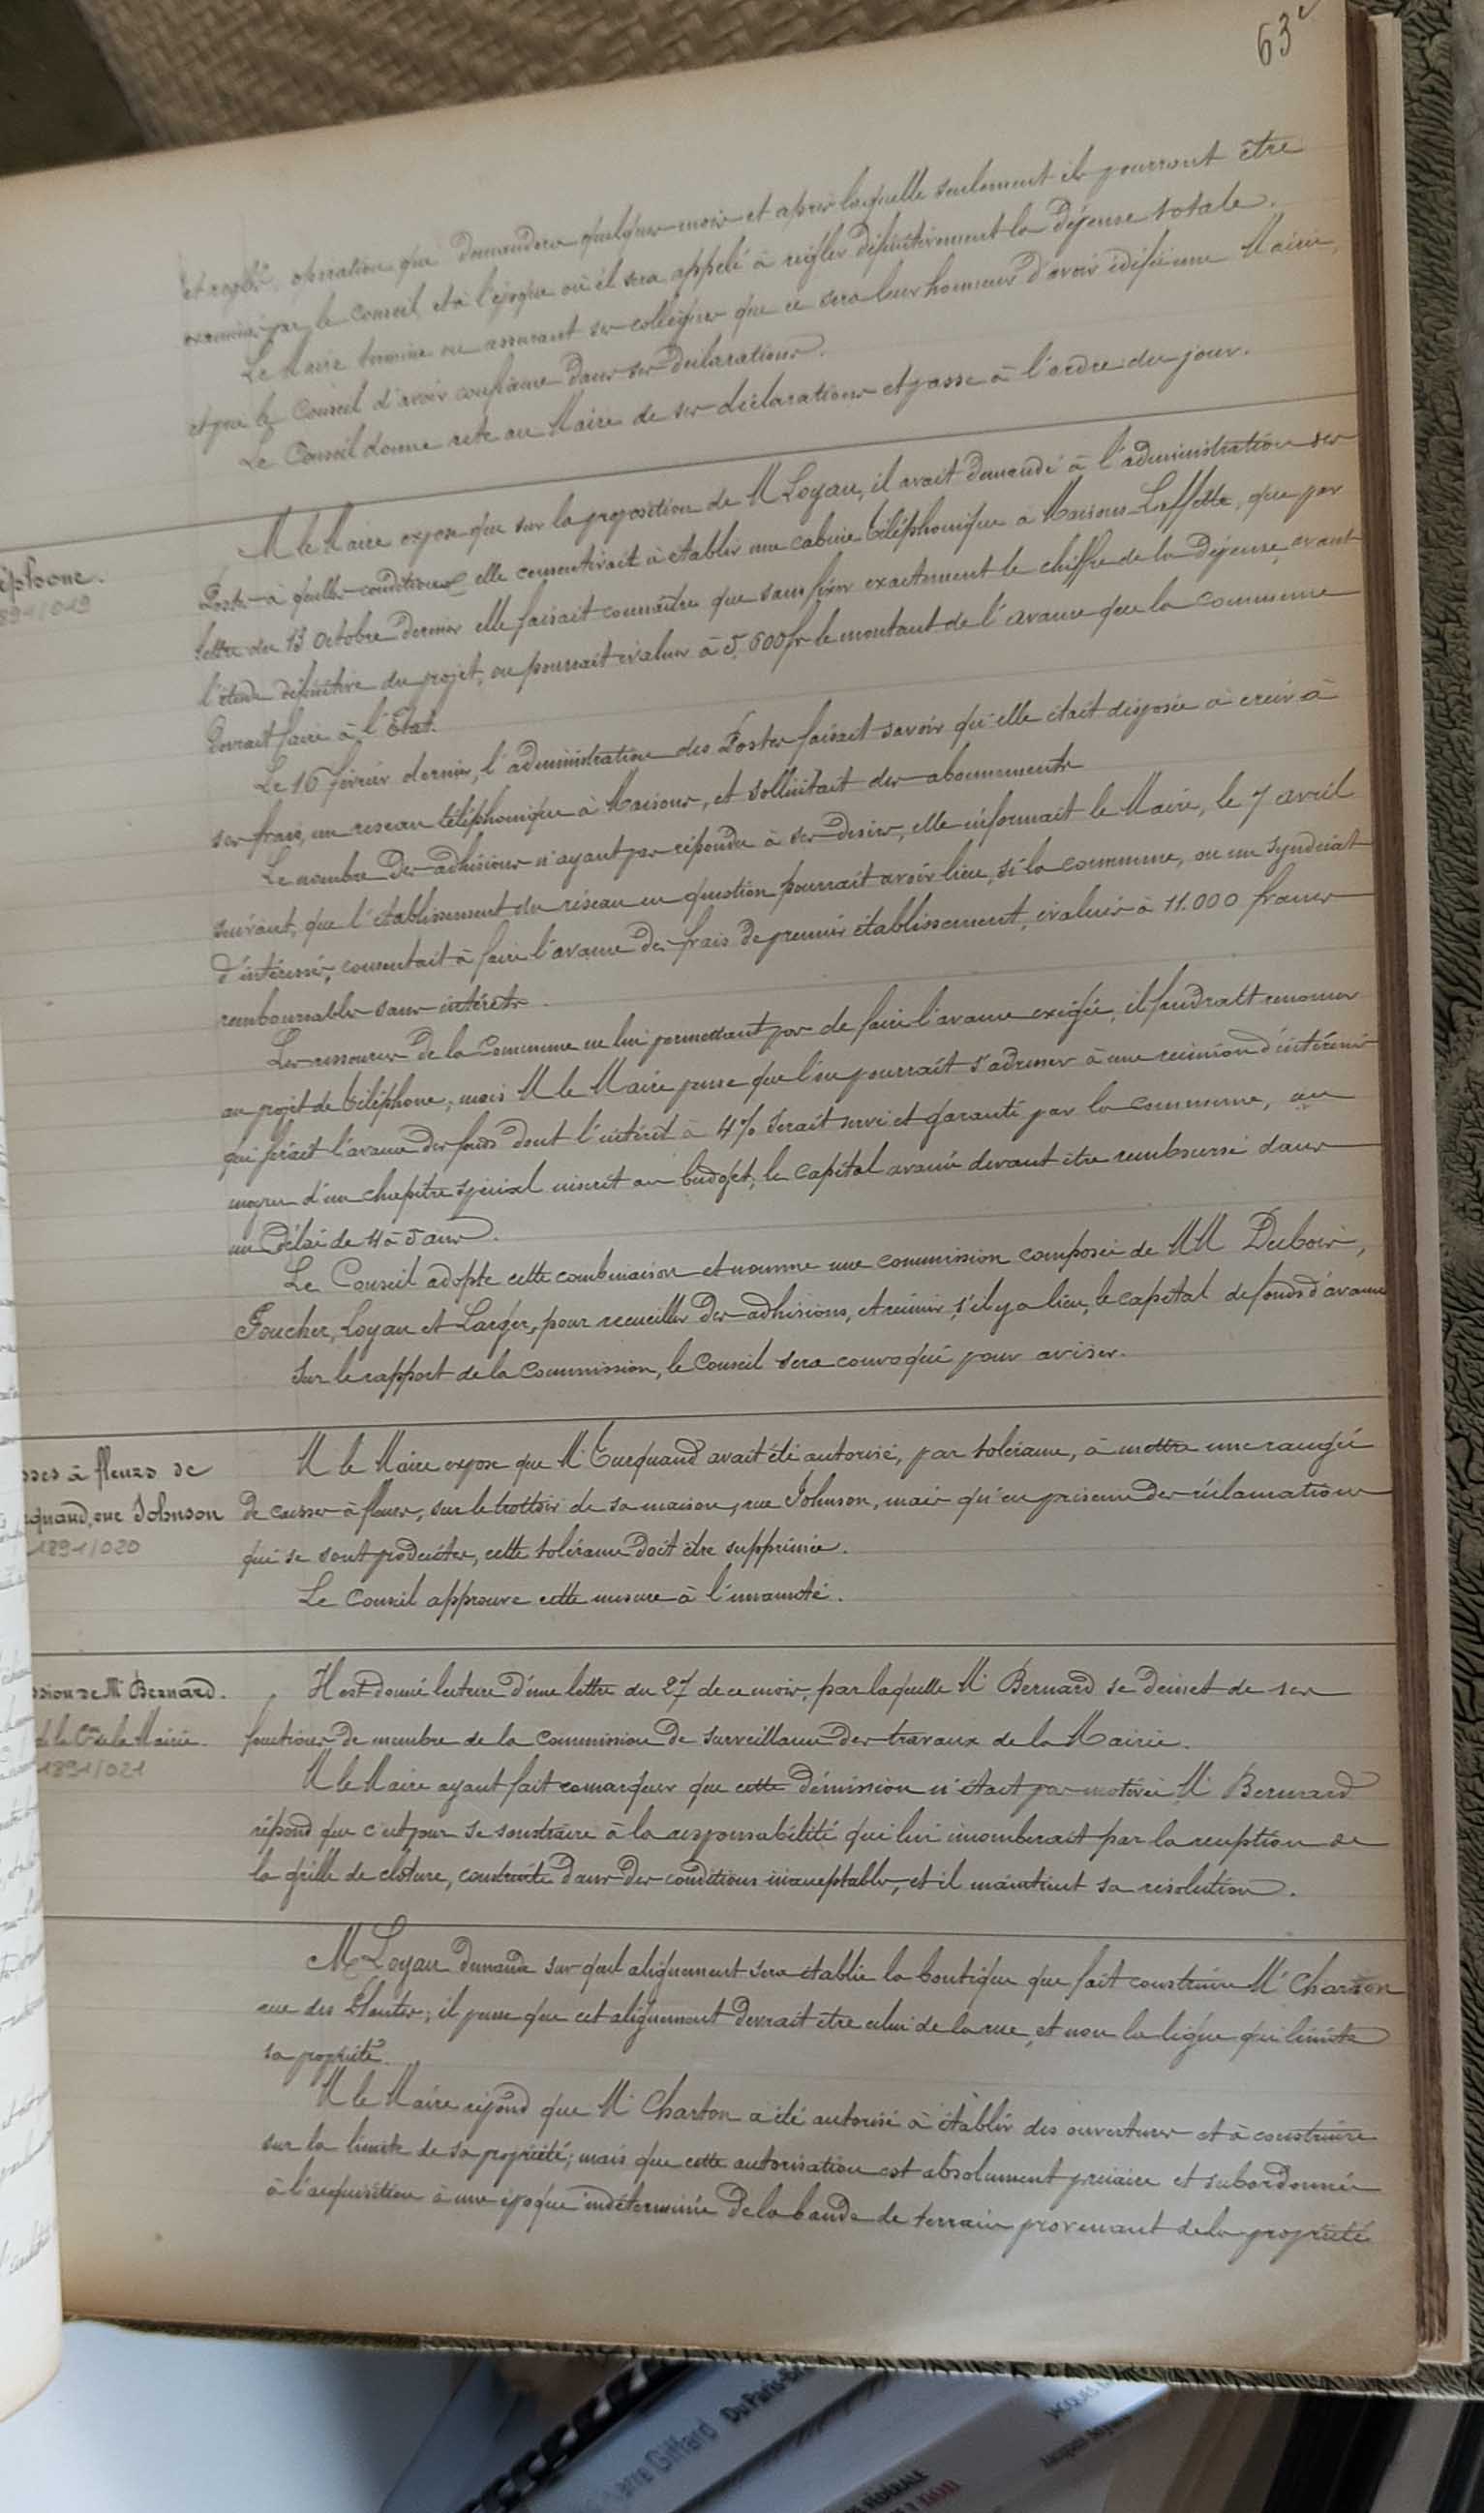 63
et réglés, opération que demandera quelques mois et après laquelle seulement ils pourront être
examinés par le Conseil et à l'époque où il sera appelé à régler définitivement la dépense totale.
Le Maire termine en assurant ses collègues que ce sera leur honneur d'avoir édifié une Mairie,
et prie le Conseil d'avoir confiance dans ses déclarations.
Le Conseil donne acte au Maire de ses déclarations et passe à l'ordre du jour.
éphone.
891/019
M le Maire expose que sur la proposition de M Loyau, il avait demandé à l'administration des
Postes à quelles conditions elle consentirait à établir une cabine téléphonique à Maisons-Laffitte, que par
lettre du 13 Octobre dernier elle faisait connaître que sans fixer exactement le chiffre de la dépense, avant
l'étude définitive du projet, on pourrait évaluer à 5.600 fr le montant de l'avance que la commune
devrait faire à l'Etat.
Le 16 février dernier, l'administration des Postes faisait savoir qu'elle était disposée à créer à
ses frais, un réseau téléphonique à Maisons, et sollicitait des abonnements
Le nombre des adhésions n'ayant pas répondu à ses désirs, elle informait le Maire, le 7 avril
suivant, que l'établissement du réseau en question pourrait avoir lieu, si la commune, ou un syndicat
d'intéressés, consentait à faire l'avance des frais de premier établissement, évalués à 11.000 francs
remboursables sans intérêts.
Les ressources de la Commune ne lui permettant pas de faire l'avance exigée, il faudrait renoncer
au projet de téléphone; mais M le Maire pense que l'on pourrait s'adresser à une réunion d'intéressés
qui ferait l'avance des fonds dont l'intérêt à 4% serait servi et garanti par la commune, au
moyen d'un chapitre spécial inscrit au budget, le capital avancé devant être remboursé dans
un délai de 4 à 5 ans.
Le Conseil adopte cette combinaison et nomme une commission composée de MM Dubois,
Foucher, Loyau et Larger, pour recueillir des adhésions, et réunir, s'il y a lieu, le capital de fonds d'avance
Sur le rapport de la Commission, le Conseil sera convoqué pour aviser.
sses à fleurs de
rquand, rue Johnson
1891/020
M le Maire expose que M Turquand avait été autorisé, par tolérance, à mettre une rangée
de caisses à fleurs, sur le trottoir de sa maison, rue Johnson, mais qu'en présence des réclamations
qui se sont produites, cette tolérance doit être supprimée.
Le Conseil approuve cette mesure à l'unanimité.
ssion de Mr Bernard.
de la Con de la Mairie.
1891/021
Il est donné lecture d'une lettre du 27 de ce mois, par laquelle Mr Bernard se démet de ses
fonctions de membre de la commission de surveillance des travaux de la Mairie.
M le Maire ayant fait remarquer que cette démission n'était pas motivée Mr Bernard
répond que c'est pour se soustraire à la responsabilité qui lui incomberait par la réception de
la grille de clôture, construite dans des conditions inacceptables, et il maintient sa résolution.
Mr Loyau demande sur quel alignement sera établie la boutique que fait construire Mr Charton
rue des Plantes; il pense que cet alignement devrait être celui de la rue, et non la ligne qui limite
sa propriété.
M le Maire répond que Mr Charton a été autorisé à établir des ouvertures et à construire
sur la limite de sa propriété; mais que cette autorisation est absolument précaire et subordonnée
à l'acquisition à une époque indéterminée de la bande de terrain provenant de la propriété
Giffard Du Paris-Br
JACQUES